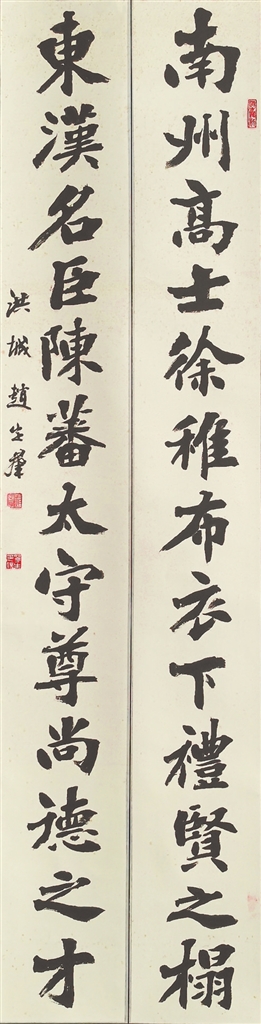 南州高士徐稚布衣下禮賢之榻
東漢名臣陳蕃太守尊尚德之才
洪城趙生群